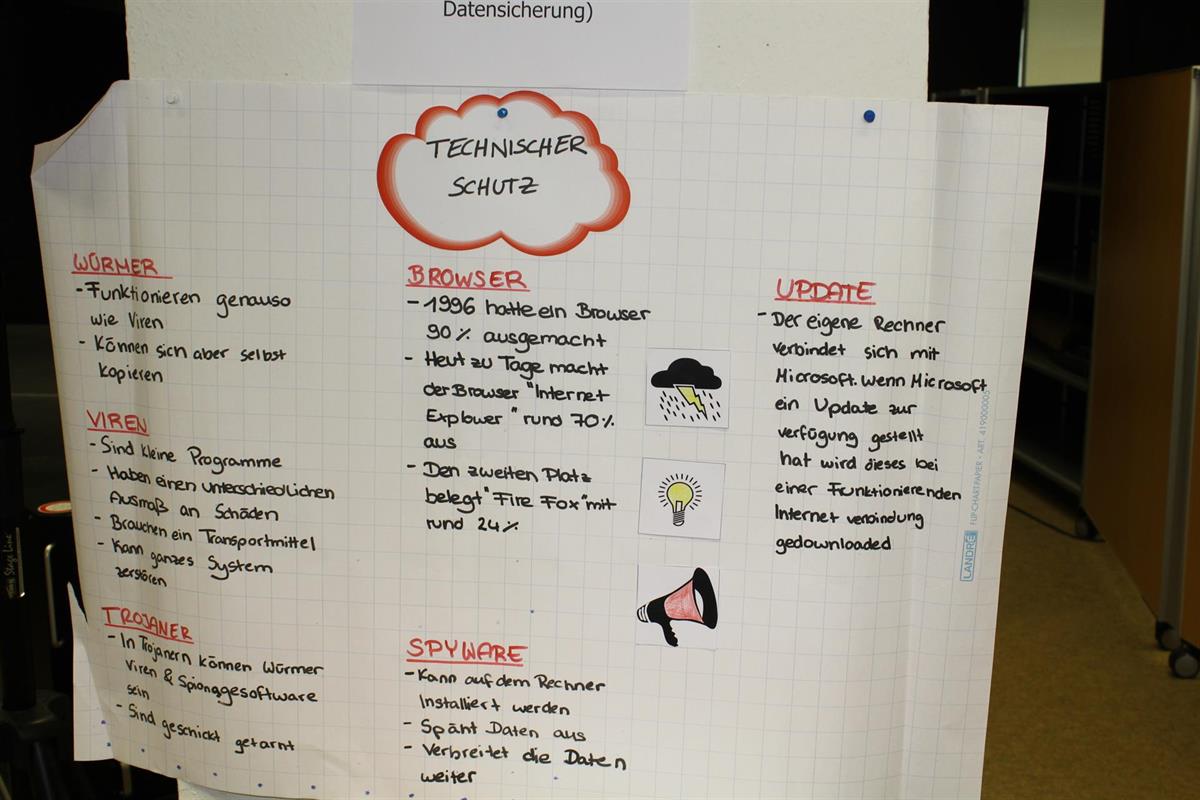 Datensicherung)
TECHNISCHER
SCHUTZ
WÜRMER
- Funktionieren genauso
wie Viren
- Können sich aber selbst
kopieren
VIREN
- Sind kleine Programme
- Haben einen unterschiedlichen
Ausmaß an Schäden
- Brauchen ein Transportmittel
- Kann ganzes System
zerstören
TROJANER
- In Trojanern können Würmer
Viren & Spionagesoftware
sein
- Sind geschickt getarnt
BROWSER
- 1996 hatte ein Browser
90% ausgemacht
- Heut zu Tage macht
der Browser "Internet
Explower" rund 70%
aus
- Den zweiten Platz
belegt "Fire Fox" mit
rund 24%
SPYWARE
- Kann auf dem Rechner
Installiert werden
- Späht Daten aus
- Verbreitet die Daten
weiter
UPDATE
- Der eigene Rechner
verbindet sich mit
Microsoft. wenn Microsoft
ein Update zur
verfügung gestellt
hat wird dieses bei
einer Funktionierenden
Internet verbindung
gedownloaded
LANDRÉ FLIP-CHARTPAPIER • ART. 419000005
Stage Line